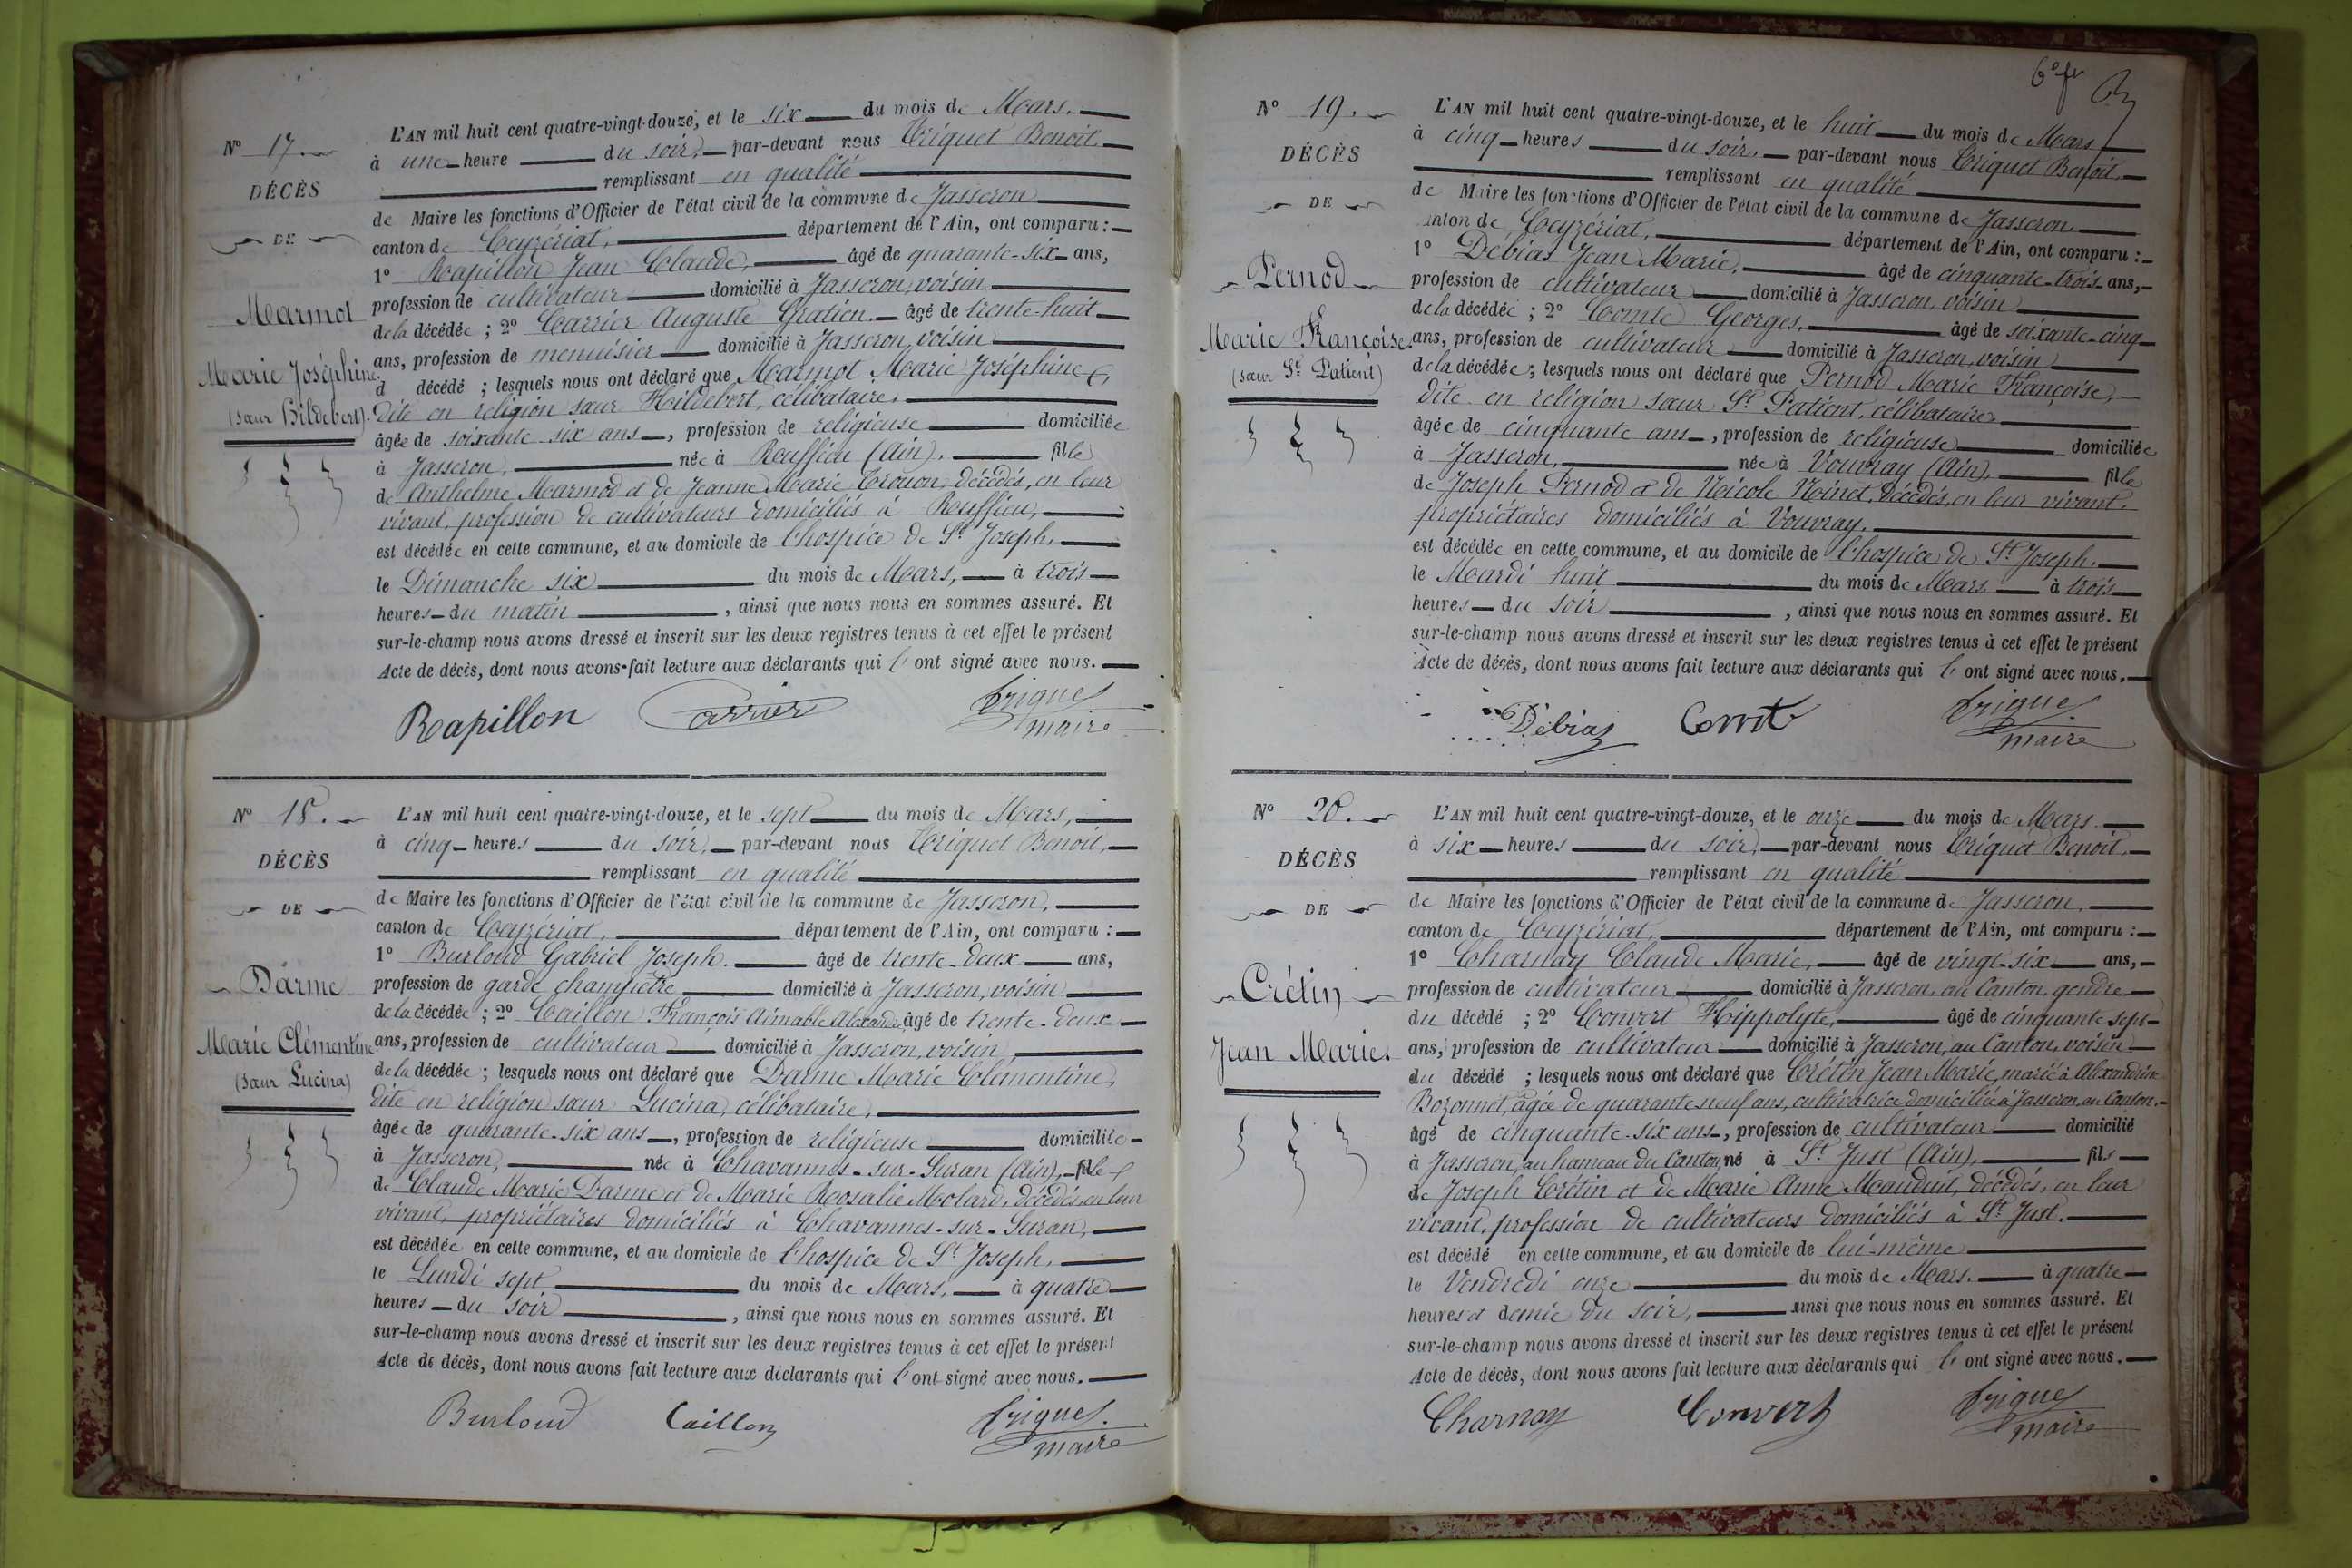 N° 17.
DÉCÈS
DE
Marmot
Marie Joséphine
(sœur Hildebert).
L'AN mil huit cent quatre-vingt-douze, et le six du mois de Mars.
à une heure du soir, par-devant nous Triquet Benoit
remplissant en qualité
de Maire les fonctions d'Officier de l'état civil de la commune de Jasseron
canton de Ceyzériat, département de l'Ain, ont comparu :
1° Rapillon Jean Claude, âgé de quarante-six ans,
profession de cultivateur domicilié à Jasseron, voisin
de la décédée ; 2° Carrier Auguste Gratien. âgé de trente-huit
ans, profession de menuisier domicilié à Jasseron, voisin
d décédé ; lesquels nous ont déclaré que Marmot Marie Joséphine
dite en religion sœur Hildebert, célibataire,
âgée de soixante-six ans, profession de religieuse domiciliée
à Jasseron, née à Ruffieu (Ain), fille
de Anthelme Marmod et de Jeanne Marie Trouon, décédés, en leur
vivant, profession de cultivateurs domiciliés à Ruffieu,
est décédée en cette commune, et au domicile de l'hospice de St Joseph,
le Dimanche six du mois de Mars, à trois
heures du matin, ainsi que nous nous en sommes assuré. Et
sur-le-champ nous avons dressé et inscrit sur les deux registres tenus à cet effet le présent
Acte de décès, dont nous avons fait lecture aux déclarants qui l'ont signé avec nous.
Rapillon Carrier Triquet
maire
N° 18.
DÉCÈS
DE
Darme
Marie Clémentine
(sœur Lucina)
L'AN mil huit cent quatre-vingt-douze, et le sept du mois de Mars,
à cinq heures du soir, par-devant nous Triquet Benoit,
remplissant en qualité
de Maire les fonctions d'Officier de l'état civil de la commune de Jasseron,
canton de Ceyzériat, département de l'Ain, ont comparu :
1° Burloud Gabriel Joseph. âgé de trente-deux ans,
profession de garde champêtre domicilié à Jasseron, voisin
de la décédée ; 2° Caillon François Aimable Alexandre âgé de trente-deux
ans, profession de cultivateur domicilié à Jasseron, voisin
de la décédée ; lesquels nous ont déclaré que Darme Marie Clémentine,
dite en religion sœur Lucina, célibataire,
âgée de quarante-six ans, profession de religieuse domiciliée
à Jasseron, née à Chavannes-sur-Suran (Ain), fille
de Claude Marie Darme et de Marie Rosalie Molard, décédés, en leur
vivant, propriétaires domiciliés à Chavannes-sur-Suran,
est décédée en cette commune, et au domicile de l'hospice de St Joseph,
le Lundi sept du mois de Mars, à quatre
heures du soir, ainsi que nous nous en sommes assuré. Et
sur-le-champ nous avons dressé et inscrit sur les deux registres tenus à cet effet le présent
Acte de décès, dont nous avons fait lecture aux déclarants qui l'ont signé avec nous.
Burloud Caillon Triquet
maire
6e f
N° 19.
DÉCÈS
DE
Pernod
Marie Françoise.
(sœur St Patient)
L'AN mil huit cent quatre-vingt-douze, et le huit du mois de Mars
à cinq heures du soir, par-devant nous Triquet Benoit,
remplissant en qualité
de Maire les fonctions d'Officier de l'état civil de la commune de Jasseron
canton de Ceyzériat, département de l'Ain, ont comparu :
1° Debias Jean Marie, âgé de cinquante-trois ans,
profession de cultivateur domicilié à Jasseron, voisin
de la décédée ; 2° Comte Georges, âgé de soixante-cinq
ans, profession de cultivateur domicilié à Jasseron, voisin
de la décédée ; lesquels nous ont déclaré que Pernod Marie Françoise,
dite en religion sœur St Patient, célibataire,
âgée de cinquante ans, profession de religieuse domiciliée
à Jasseron, née à Vouvray (Ain), fille
de Joseph Pernod et de Nicole Noinet, décédés, en leur vivant,
propriétaires domiciliés à Vouvray,
est décédée en cette commune, et au domicile de l'hospice de St Joseph,
le Mardi huit du mois de Mars à trois
heures du soir, ainsi que nous nous en sommes assuré. Et
sur-le-champ nous avons dressé et inscrit sur les deux registres tenus à cet effet le présent
Acte de décès, dont nous avons fait lecture aux déclarants qui l'ont signé avec nous.
Débias Comte Triquet
maire
N° 20.
DÉCÈS
DE
Crétin
Jean Marie.
L'AN mil huit cent quatre-vingt-douze, et le onze du mois de Mars
à six heures du soir, par-devant nous Triquet Benoit,
remplissant en qualité
de Maire les fonctions d'Officier de l'état civil de la commune de Jasseron,
canton de Ceyzériat, département de l'Ain, ont comparu :
1° Charnay Claude Marie, âgé de vingt-six ans,
profession de cultivateur domicilié à Jasseron, au Canton, gendre
du décédé ; 2° Convert Hippolyte, âgé de cinquante sept
ans, profession de cultivateur domicilié à Jasseron, au Canton, voisin
du décédé ; lesquels nous ont déclaré que Crétin Jean Marie, marié à Alexandrine
Bozonnet, âgée de quarante neuf ans, cultivatrice domiciliée à Jasseron, au Canton,
âgé de cinquante-six ans, profession de cultivateur domicilié
à Jasseron, au hameau du Canton, né à St Just (Ain), fils
de Joseph Crétin et de Marie Anne Mauduit, décédés, en leur
vivant, profession de cultivateurs domiciliés à St Just.
est décédé en cette commune, et au domicile de lui-même
le Vendredi onze du mois de Mars. à quatre
heures et demie du soir, ainsi que nous nous en sommes assuré. Et
sur-le-champ nous avons dressé et inscrit sur les deux registres tenus à cet effet le présent
Acte de décès, dont nous avons fait lecture aux déclarants qui l'ont signé avec nous.
Charnay Convert Triquet
maire